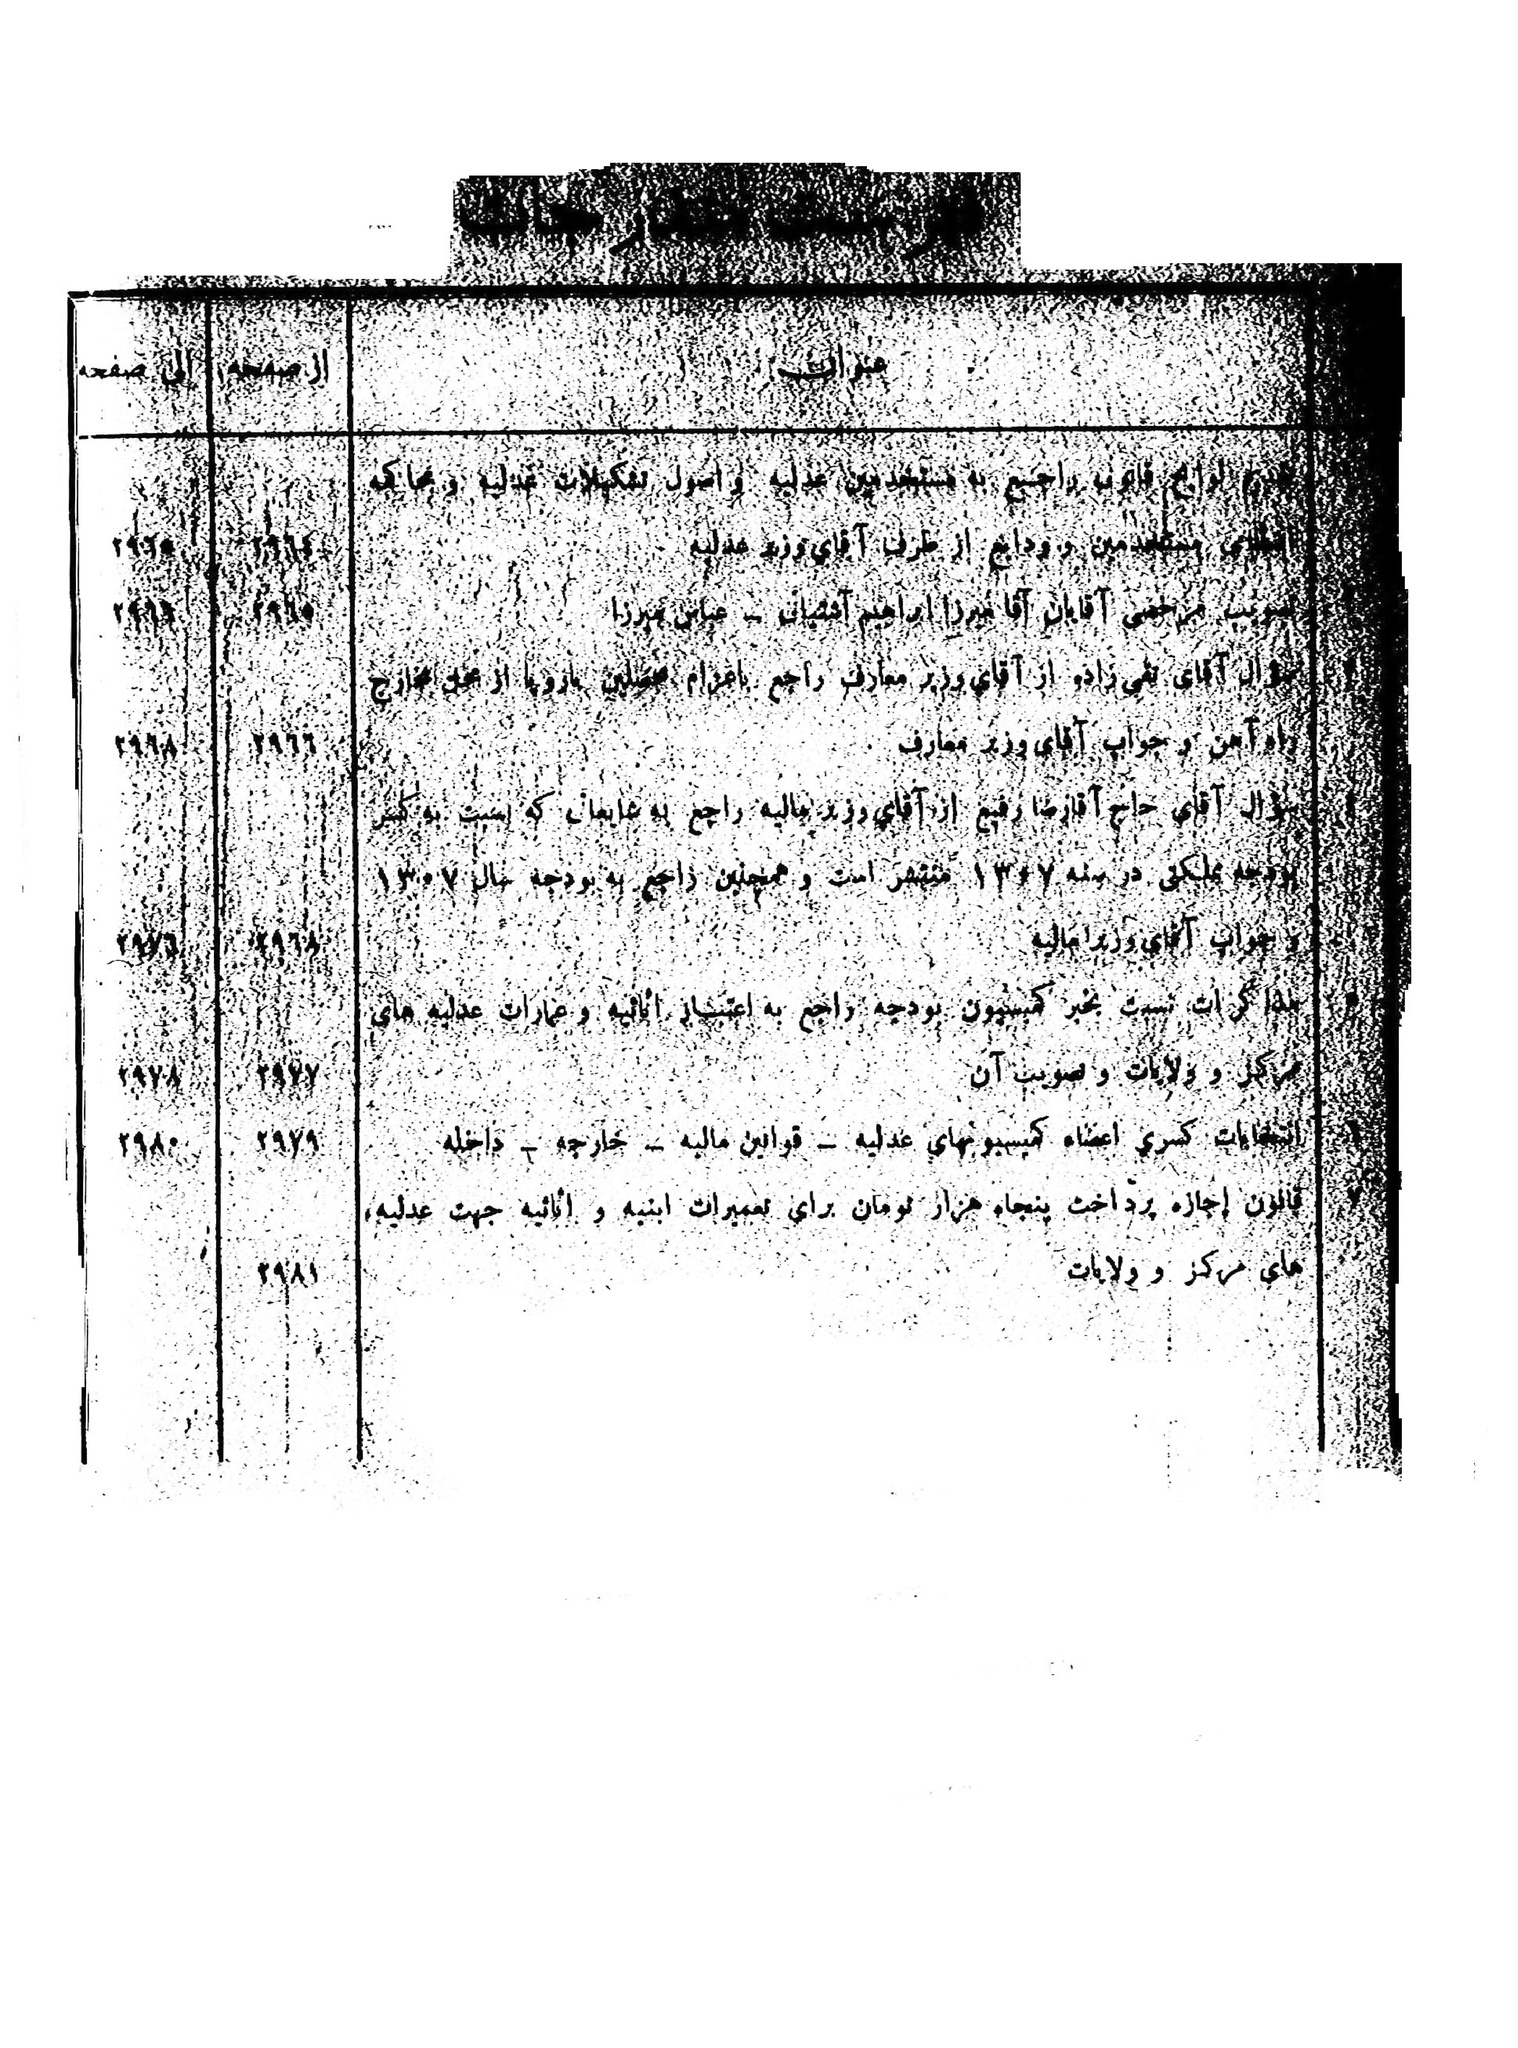 فهرست مندرجات
عنوان از صفحه الی صفحه
تقدیم لوایح قانونی راجع به مستخدمین عدلیه و اصول تشکیلات عدلیه و محاکمه
انتظامی مستخدمین و ودایع از طرف آقای وزیر عدلیه ۲۹۶۴ ۲۹۶۵
تصویب مرخصی آقایان آقا میرزا ابراهیم آشتیانی ــ عباس میرزا ۲۹۶۵ ۲۹۶۶
۳ سؤال آقای تقی زاده از آقای وزیر معارف راجع باعزام محصلین باروپا از محل مخارج
راه آهن و جواب آقای وزیر معارف ۲۹۶۶ ۲۹۶۸
۴ سؤال آقای حاج آقارضا رفیع از آقای وزیر مالیه راجع به شایعاتی که نسبت به کسر
بودجه مملکتی در سنه ۱۳۰۷ منتشر است و همچنین راجع به بودجه سال ۱۳۰۷
و جواب آقای وزیر مالیه ۲۹۶۸ ۲۹۷۶
۵ مذاکرات نسبت بخبر کمیسیون بودجه راجع به اعتبار اثاثیه و عمارات عدلیه های
مرکز و ولایات و تصویب آن ۲۹۷۷ ۲۹۷۸
۶ انتخابات کسری اعضاء کمیسیونهای عدلیه ــ قوانین مالیه ــ خارجه ــ داخله ۲۹۷۹ ۲۹۸۰
۷ قانون اجازه پرداخت پنجاه هزار تومان برای تعمیرات ابنیه و اثاثیه جهت عدلیه
های مرکز و ولایات ۲۹۸۱